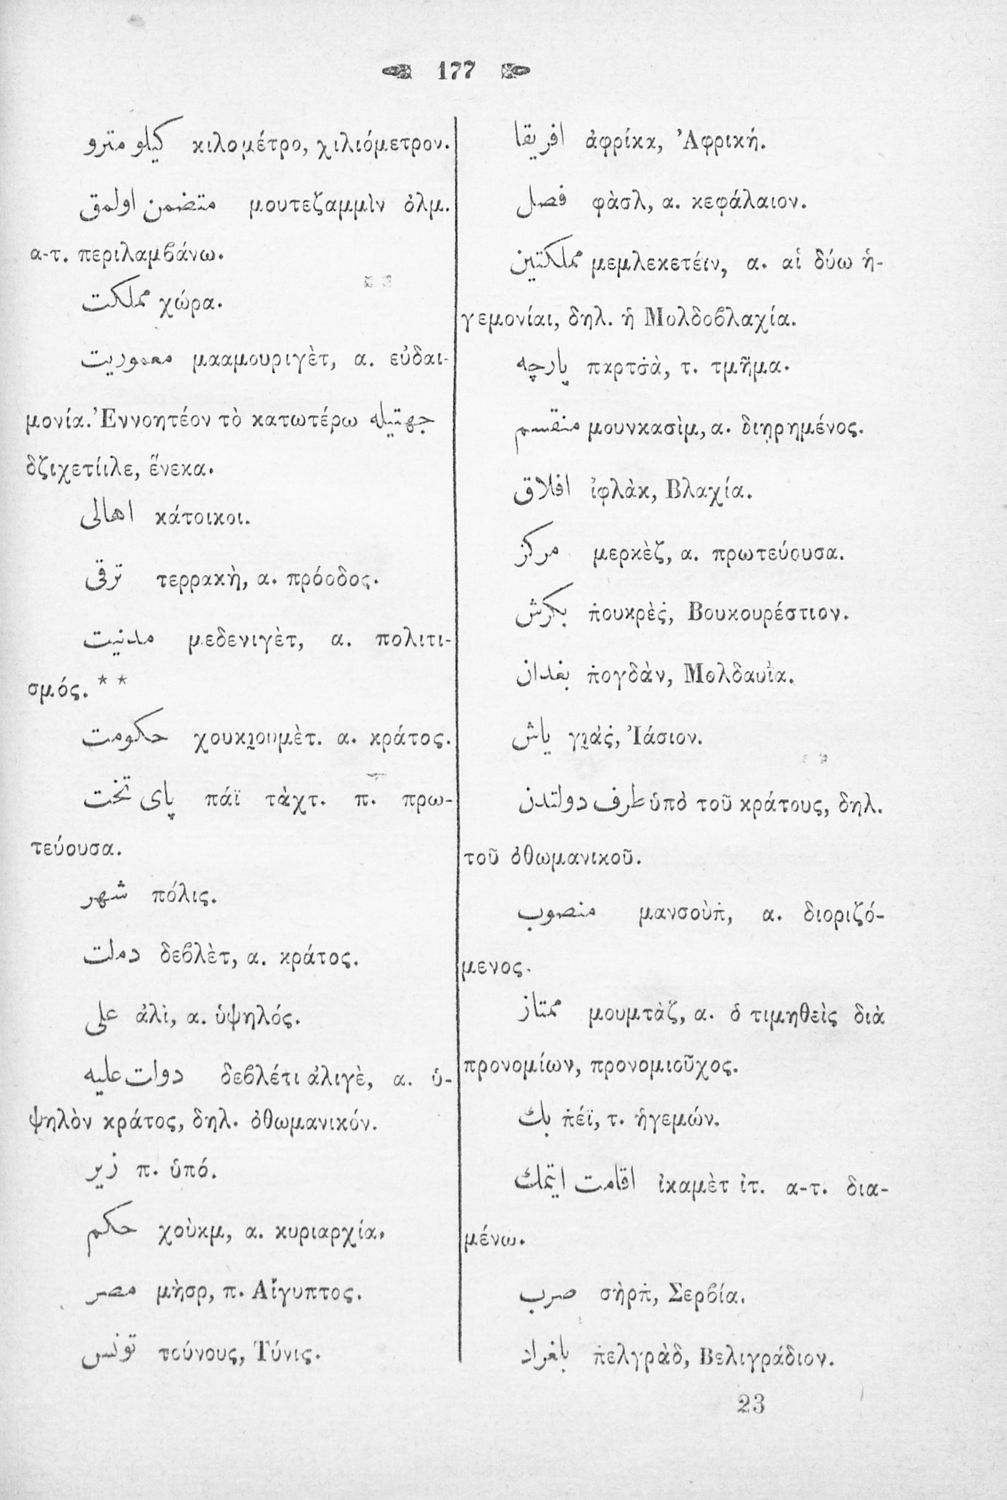 177
كيلو مترو κιλομέτρο, χιλιόμετρον.
متضمن اولمق μουτεζαμμὶν ὀλμ.
α-τ. περιλαμβάνω.
مملكت χώρα.
معموريت μααμουριγὲτ, α. εὐδαι-
μονία. Ἐννοητέον τὸ κατωτέρω جهتيله
δζιχετίιλε, ἕνεκα.
اهالى κάτοικοι.
ترقى τερρακὴ, α. πρόοδος.
مدنيت μεδενιγὲτ, α. πολιτι-
σμός. * *
حكومت χουκιουμὲτ. α. κράτος.
پاى تخت πάϊ τὰχτ. π. πρω-
τεύουσα.
شهر πόλις.
دولت δεβλὲτ, α. κράτος.
على ἀλὶ, α. ὑψηλός.
دولت عليه δεβλέτι ἀλιγὲ, α. ὑ-
ψηλὸν κράτος, δηλ. ὀθωμανικόν.
زير π. ὑπό.
حكم χοὺκμ, α. κυριαρχία.
مصر μὴσρ, π. Αἴγυπτος.
تونس τούνους, Τύνις.
افريقا ἀφρίκα, Ἀφρική.
فصل φὰσλ, α. κεφάλαιον.
مملكتين μεμλεκετέϊν, α. αἱ δύω ἡ-
γεμονίαι, δηλ. ἡ Μολδοβλαχία.
پارچه παρτσὰ, τ. τμῆμα.
منقسم μουνκασὶμ, α. διῃρημένος.
افلاق ἰφλὰκ, Βλαχία.
مركز μερκὲζ, α. πρωτεύουσα.
بكرش π̇ουκρὲς, Βουκουρέστιον.
بغدان π̇ογδὰν, Μολδαυΐα.
ياش γιὰς, Ἰάσιον.
دولتدن طرف ὑπὸ τοῦ κράτους, δηλ.
τοῦ ὀθωμανικοῦ.
منصوب μανσοὺπ̇, α. διοριζό-
μενος.
ممتاز μουμτὰζ, α. ὁ τιμηθεὶς διὰ
προνομίων, προνομιοῦχος.
بك π̇έϊ, τ. ἡγεμών.
اقامت ايتمك ἰκαμὲτ ἰτ. α-τ. δια-
μένω.
صرب σὴρπ̇, Σερβία.
بلغراد π̇ελγρὰδ, Βελιγράδιον.
23